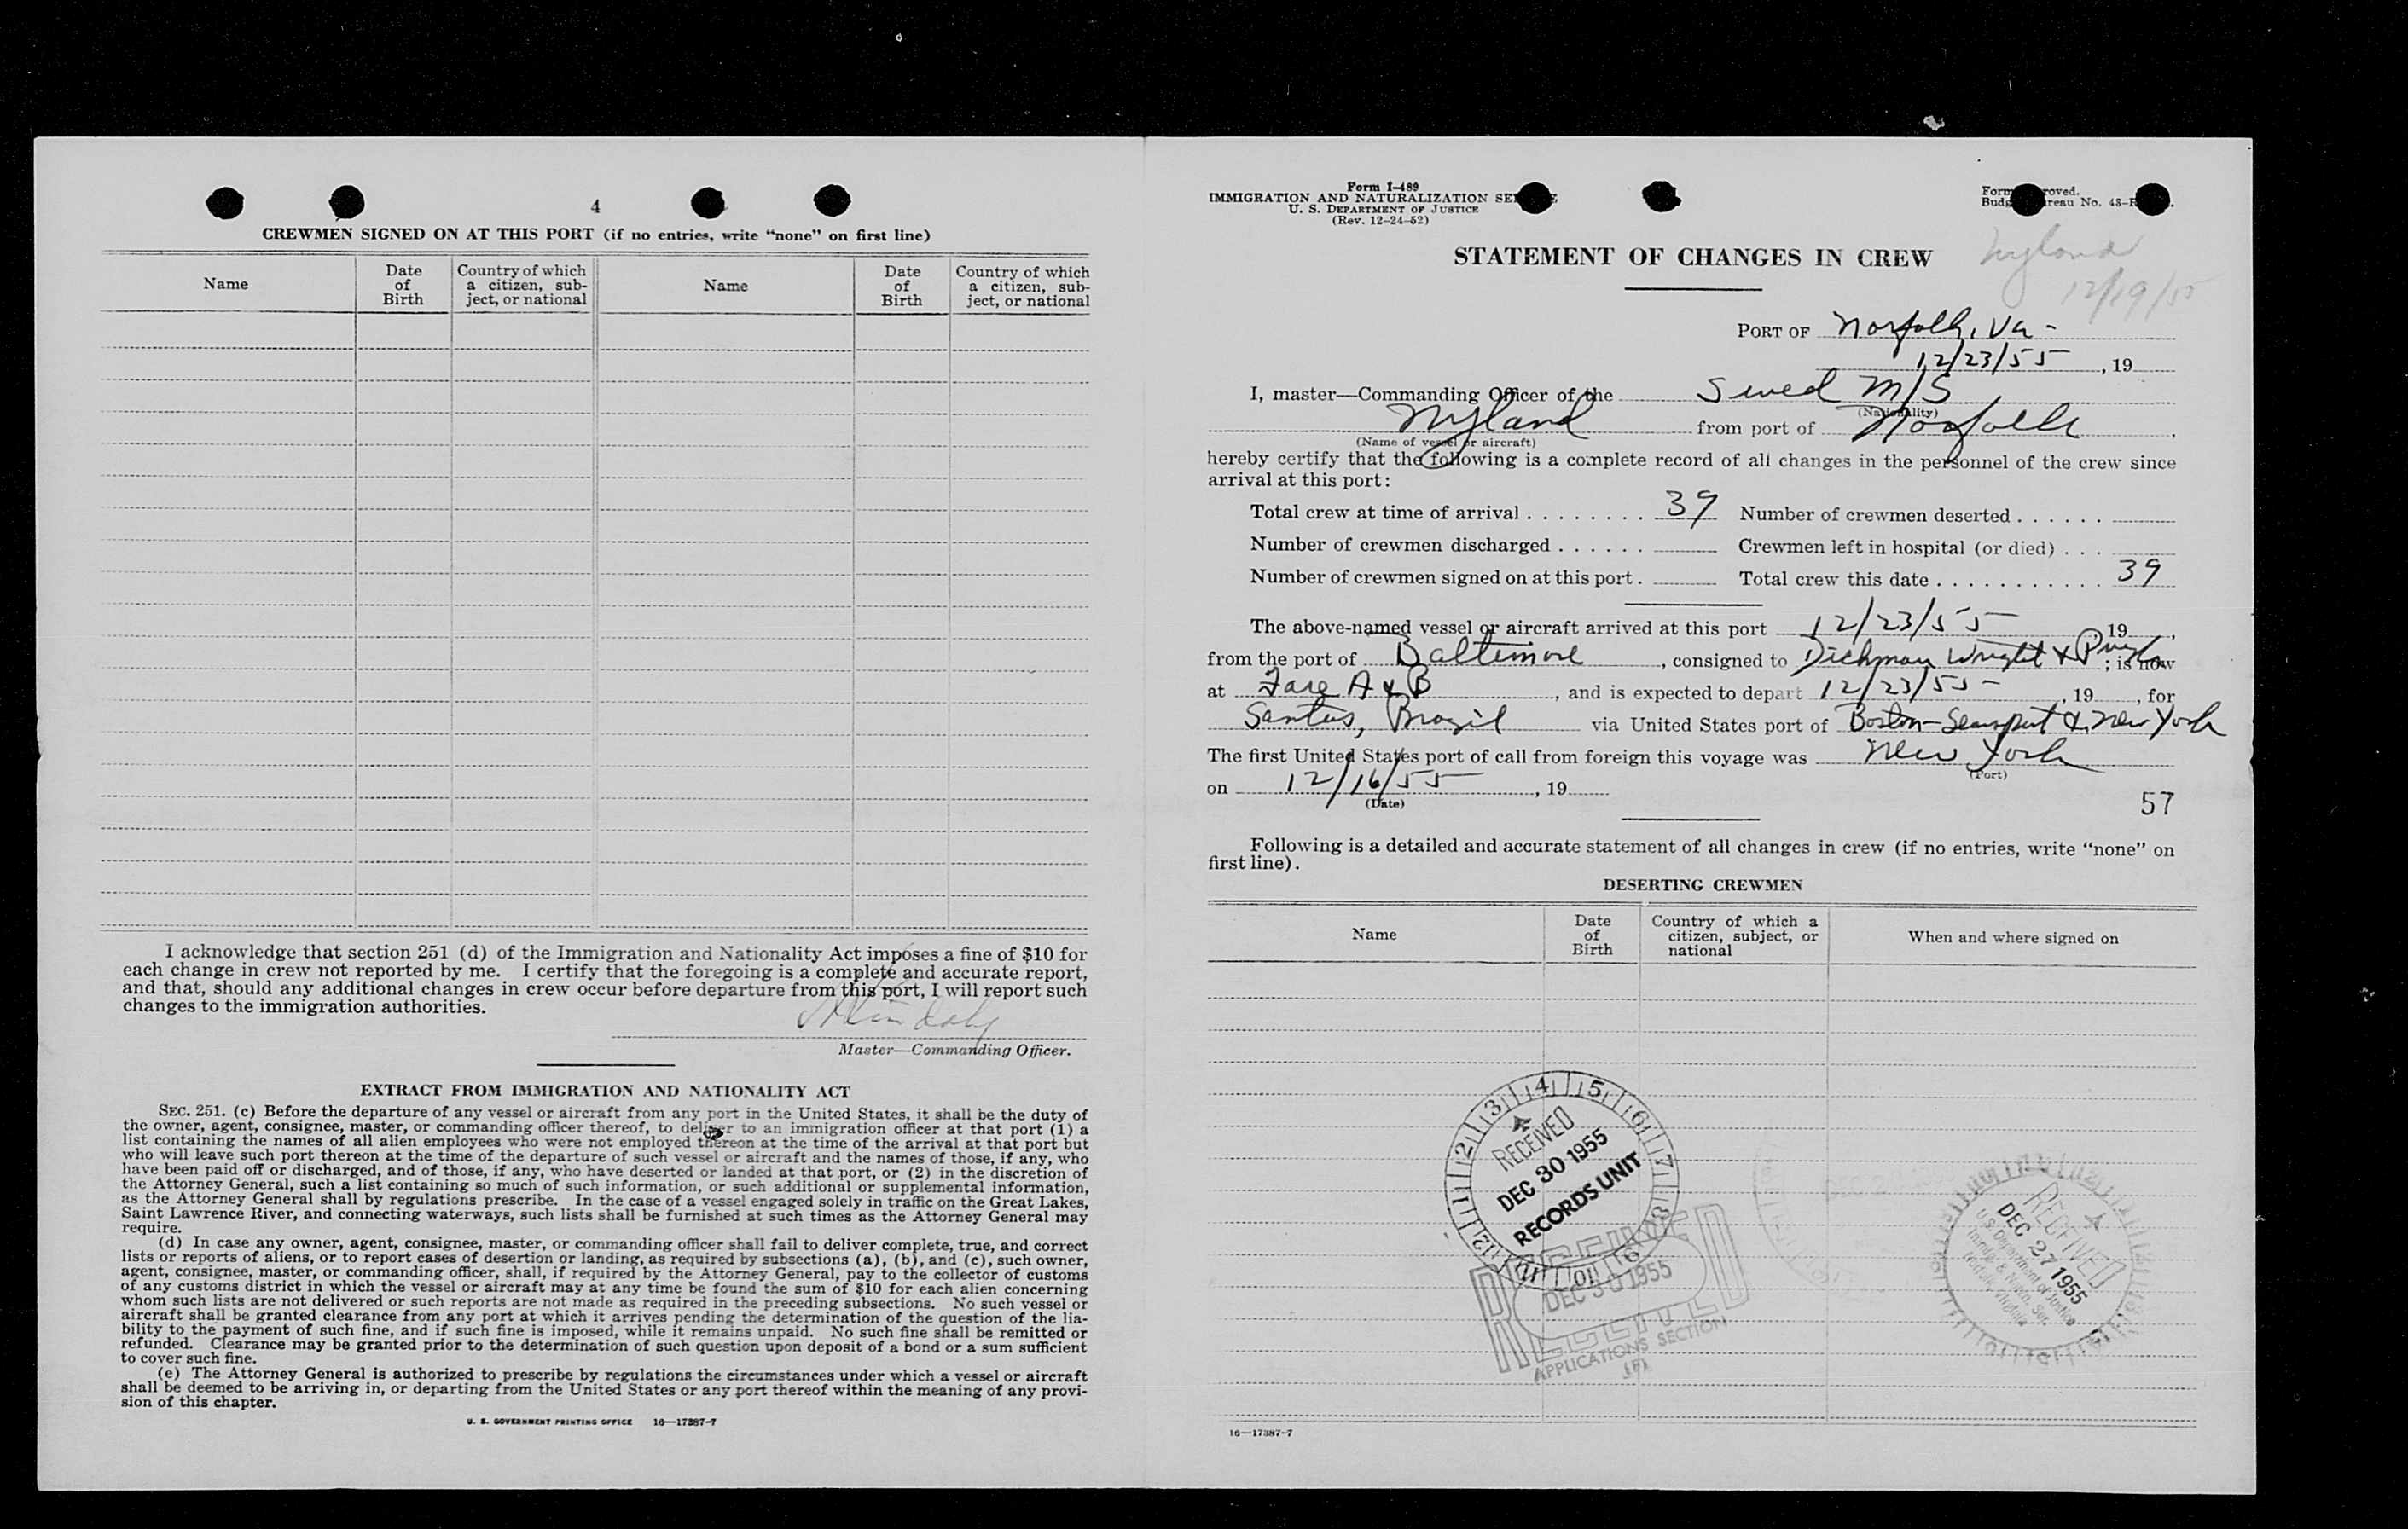 4
CREWMEN SIGNED ON AT THIS PORT (if no entries, write "none" on first line)
Name
Date of Birth
Country of which a citizen, sub-ject, or national
Name
Date of Birth
Country of which a citizen, sub-ject, or national
I acknowledge that section 251 (d) of the Immigration and Nationality Act imposes a fine of $10 for
each change in crew not reported by me. I certify that the foregoing is a complete and accurate report,
and that, should any additional changes in crew occur before departure from this port, I will report such
changes to the immigration authorities.
Master—Commanding Officer.
EXTRACT FROM IMMIGRATION AND NATIONALITY ACT
SEC. 251. (c) Before the departure of any vessel or aircraft from any port in the United States, it shall be the duty of
the owner, agent, consignee, master, or commanding officer thereof, to deliver to an immigration officer at that port (1) a
list containing the names of all alien employees who were not employed thereon at the time of the arrival at that port but
who will leave such port thereon at the time of the departure of such vessel or aircraft and the names of those, if any, who
have been paid off or discharged, and of those, if any, who have deserted or landed at that port, or (2) in the discretion of
the Attorney General, such a list containing so much of such information, or such additional or supplemental information,
as the Attorney General shall by regulations prescribe. In the case of a vessel engaged solely in traffic on the Great Lakes,
Saint Lawrence River, and connecting waterways, such lists shall be furnished at such times as the Attorney General may
require.
(d) In case any owner, agent, consignee, master, or commanding officer shall fail to deliver complete, true, and correct
lists or reports of aliens, or to report cases of desertion or landing, as required by subsections (a), (b), and (c), such owner,
agent, consignee, master, or commanding officer, shall, if required by the Attorney General, pay to the collector of customs
of any customs district in which the vessel or aircraft may at any time be found the sum of $10 for each alien concerning
whom such lists are not delivered or such reports are not made as required in the preceding subsections. No such vessel or
aircraft shall be granted clearance from any port at which it arrives pending the determination of the question of the lia-
bility to the payment of such fine, and if such fine is imposed, while it remains unpaid. No such fine shall be remitted or
refunded. Clearance may be granted prior to the determination of such question upon deposit of a bond or a sum sufficient
to cover such fine.
(e) The Attorney General is authorized to prescribe by regulations the circumstances under which a vessel or aircraft
shall be deemed to be arriving in, or departing from the United States or any port thereof within the meaning of any provi-
sion of this chapter.
U. S. GOVERNMENT PRINTING OFFICE 16—17387-7
Form I-489
IMMIGRATION AND NATURALIZATION
U. S. DEPARTMENT OF JUSTICE
(Rev. 12-24-52)
No. 43-
STATEMENT OF CHANGES IN CREW
Nyland
12/19/55
PORT OF Norfolk, Va-
12/23/55, 19
I, master—Commanding Officer of the Swed M/S
(Nationality)
Nyland from port of Norfolk,
(Name of vessel or aircraft)
hereby certify that the following is a complete record of all changes in the personnel of the crew since
arrival at this port:
Total crew at time of arrival . . . . . . . . 39 Number of crewmen deserted . . . . . .
Number of crewmen discharged . . . . . . Crewmen left in hospital (or died) . . .
Number of crewmen signed on at this port . Total crew this date . . . . . . . . . . . . 39
The above-named vessel or aircraft arrived at this port 12/23/55, 19,
from the port of Baltimore, consigned to Dichman Wright & Pugh; is now
at A & B, and is expected to depart 12/23/55, 19, for
Santos, Brazil via United States port of Boston-Searsport & New York
The first United States port of call from foreign this voyage was New York
(Port)
on 12/16/55, 19
(Date)
57
Following is a detailed and accurate statement of all changes in crew (if no entries, write "none" on
first line).
DESERTING CREWMEN
Name
Date of Birth
Country of which a citizen, subject, or national
When and where signed on
1 2 3 4 5 6 7 8 9 10 11 12
RECEIVED
DEC 30 1955
RECORDS UNIT
RECEIVED
DEC 30 1955
APPLICATIONS SECTION
RECEIVED
DEC 27 1955
U. S. Department of Justice
Immig. & Natzn. Ser.
Norfolk, Virginia
16—17387-7